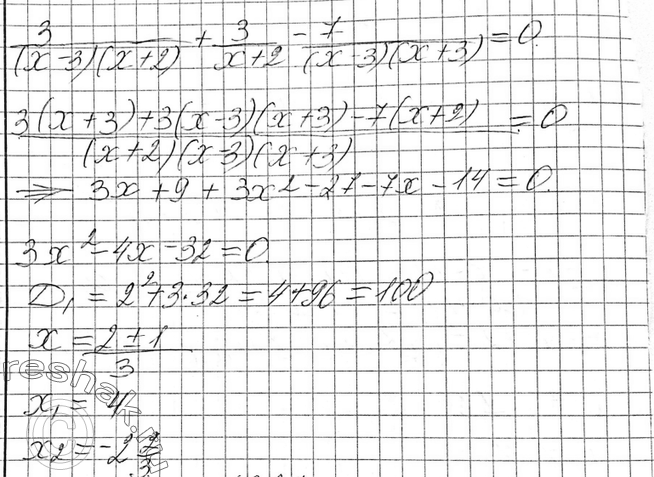 3/((x-3)(x+2)) + 3/(x+2) - 7/((x-3)(x+3)) = 0
(3(x+3)+3(x-3)(x+3)-7(x+2))/((x+2)(x-3)(x+3)) = 0
⇒ 3x+9+3x²-27-7x-14=0.
3x²-4x-32=0.
D₁=2²+3·32=4+96=100
x=(2±1)/3
x₁=4
x₂=-2 2/3
reshak.ru